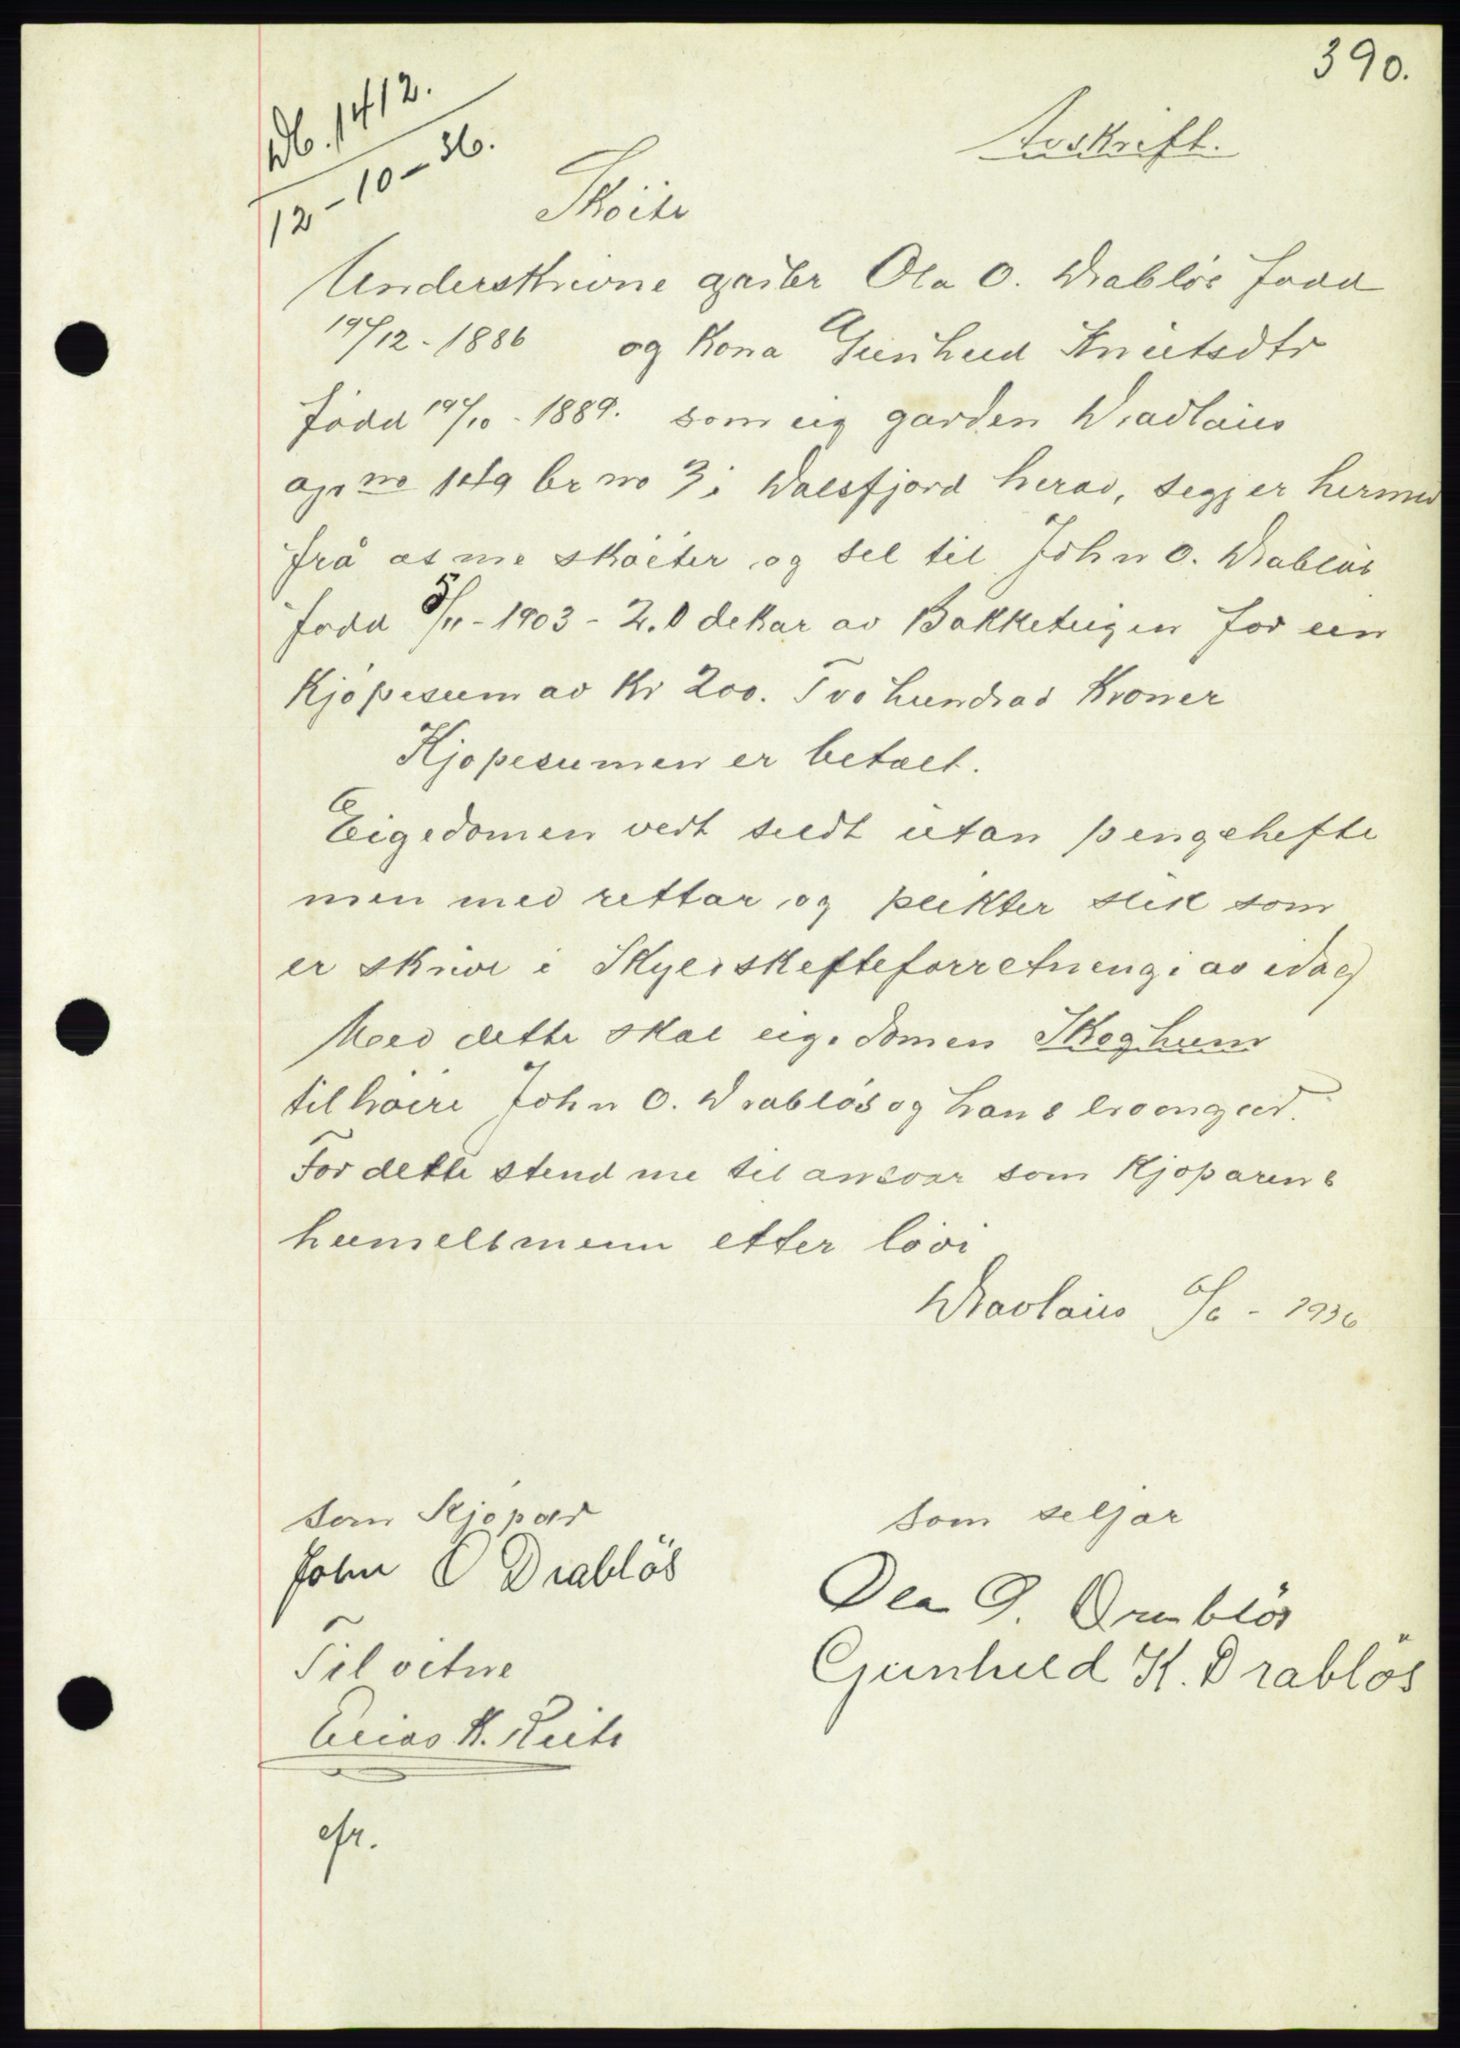 390.
Db. 1412.
12-10-36.
Avskrift.
Skøite
Underskrivne gjeiter Ola O. Drabløs fødd
/12-1886 og kona Gunhild Knutsdtr
fødd /10-1889. som eig garden Dravlaus
gr no br no 3 i Dalsfjord herad, segjer hermed
frå os me skøiter og sel til John O. Drabløs
fødd 5/11-1903 - 2.0 dekar av Bakketeigen for ein
kjøpesum av kr 200. Tvo hundrad kroner
Kjøpesumen er betalt.
Eigedomen vert seldt utan pengehefte
men med rettar og plikter slik som
er skrive i Skyldskifteforretningi av idag
Med dette skal eigedomen Skogheim
tilhøire John O. Drabløs og hans livongar.
For dette stend me til ansvar som kjøparens
heimelsmenn etter lovi
Dravlaus 6/6 - 1936
som kjøpar
John O Drablös
som seljar
Ola O. Drabløs
Gunhild K. Drabløs
Til vitne
Elias K.
efr.